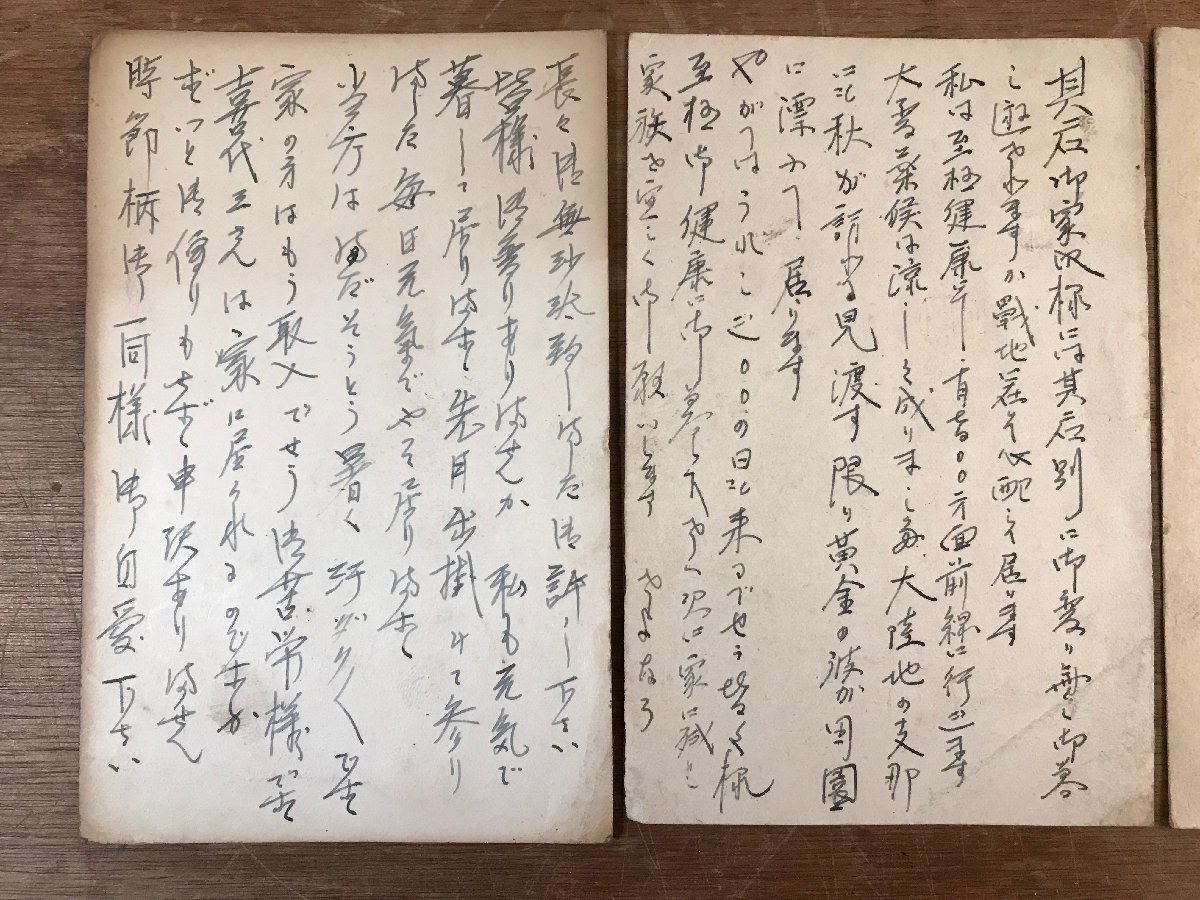 其后御家内様には其后別に御変り無く御暮
し遊されますか戦地に在て心配して居ます
私は至極健康にて有る〇〇方面前線に行って居ます
大雪 気候は涼しく成りました 大陸地の支那
にも秋が訪れて見渡す限り黄金の波が田園
に漂ふて居ります
やがてはうれしい〇〇の日も来るでせう 皆々様
至極御健康に御暮し下さい 次に家に残し
家族を宜しく御願いします さよなら
長々御無沙汰致しました御許し下さい
皆様御変りありませんか 私も元気で
暮して居ります 先日出掛けて参り
ました 毎日元気でやって居ります
当方はまだそうとう暑く 汗ダクダクです
家の方はもう取入でせう 御苦労様です
喜代三さんは家に居られるのですか
ずっと御便りも出さず申訳ありません
時節柄御一同様御自愛下さい